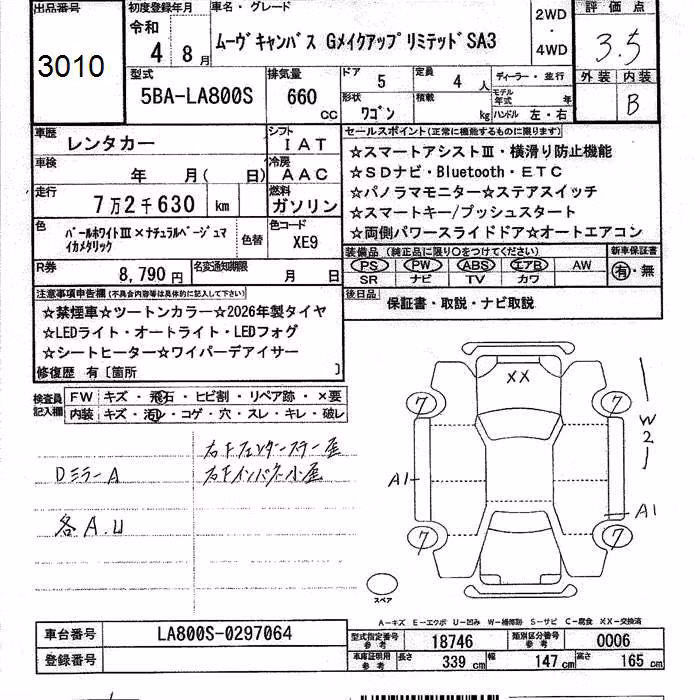 出品番号
3010
初度登録年月
令和
4 8月
車名・グレード
ムーヴキャンバス GメイクアップリミテッドSA3
2WD
・
4WD
評価点
3.5
外装 内装
B
型式
5BA-LA800S
排気量
660
cc
ドア 5
定員 4 人
ディーラー・並行
形状 ワゴン
積載 kg
モデル年式 年
ハンドル 左・右
車歴 レンタカー
シフト IAT
車検 年 月( 日)
冷房 AAC
走行 7万2千630 km
燃料 ガソリン
色 パールホワイトⅢ×ナチュラルベージュマイカメタリック
色替
色コード XE9
R券 8,790円
名変通知期限 月 日
セールスポイント(正常に機能するものに限ります)
☆スマートアシストⅢ・横滑り防止機能
☆SDナビ・Bluetooth・ETC
☆パノラマモニター☆ステアスイッチ
☆スマートキー/プッシュスタート
☆両側パワースライドドア☆オートエアコン
装備品(純正品に限り○をつけてください)
新車保証書
PS PW ABS エアB AW
SR ナビ TV カワ
有・無
後日品 保証書・取説・ナビ取説
注意事項申告欄(不具合内容等は具体的に記入して下さい)
☆禁煙車☆ツートンカラー☆2026年製タイヤ
☆LEDライト・オートライト・LEDフォグ
☆シートヒーター☆ワイパーデアイサー
修復歴 有〔箇所 〕
検査員記入欄
FW キズ・飛石・ヒビ割・リペア跡・×要
内装 キズ・汚レ・コゲ・穴・スレ・キレ・破レ
右Fフェンダーステー曲
DミラーA
右Fインパネ小屋
各A.U
XX
7
7
W2
A1
A1
7
7
スペア
A-キズ E-エクボ U-凹み W-補修跡 S-サビ C-腐食 XX-交換済
車台番号 LA800S-0297064
登録番号
型式指定番号参考 18746
類別区分番号参考 0006
車庫証明用参考 長さ 339cm 幅 147cm 高さ 165cm